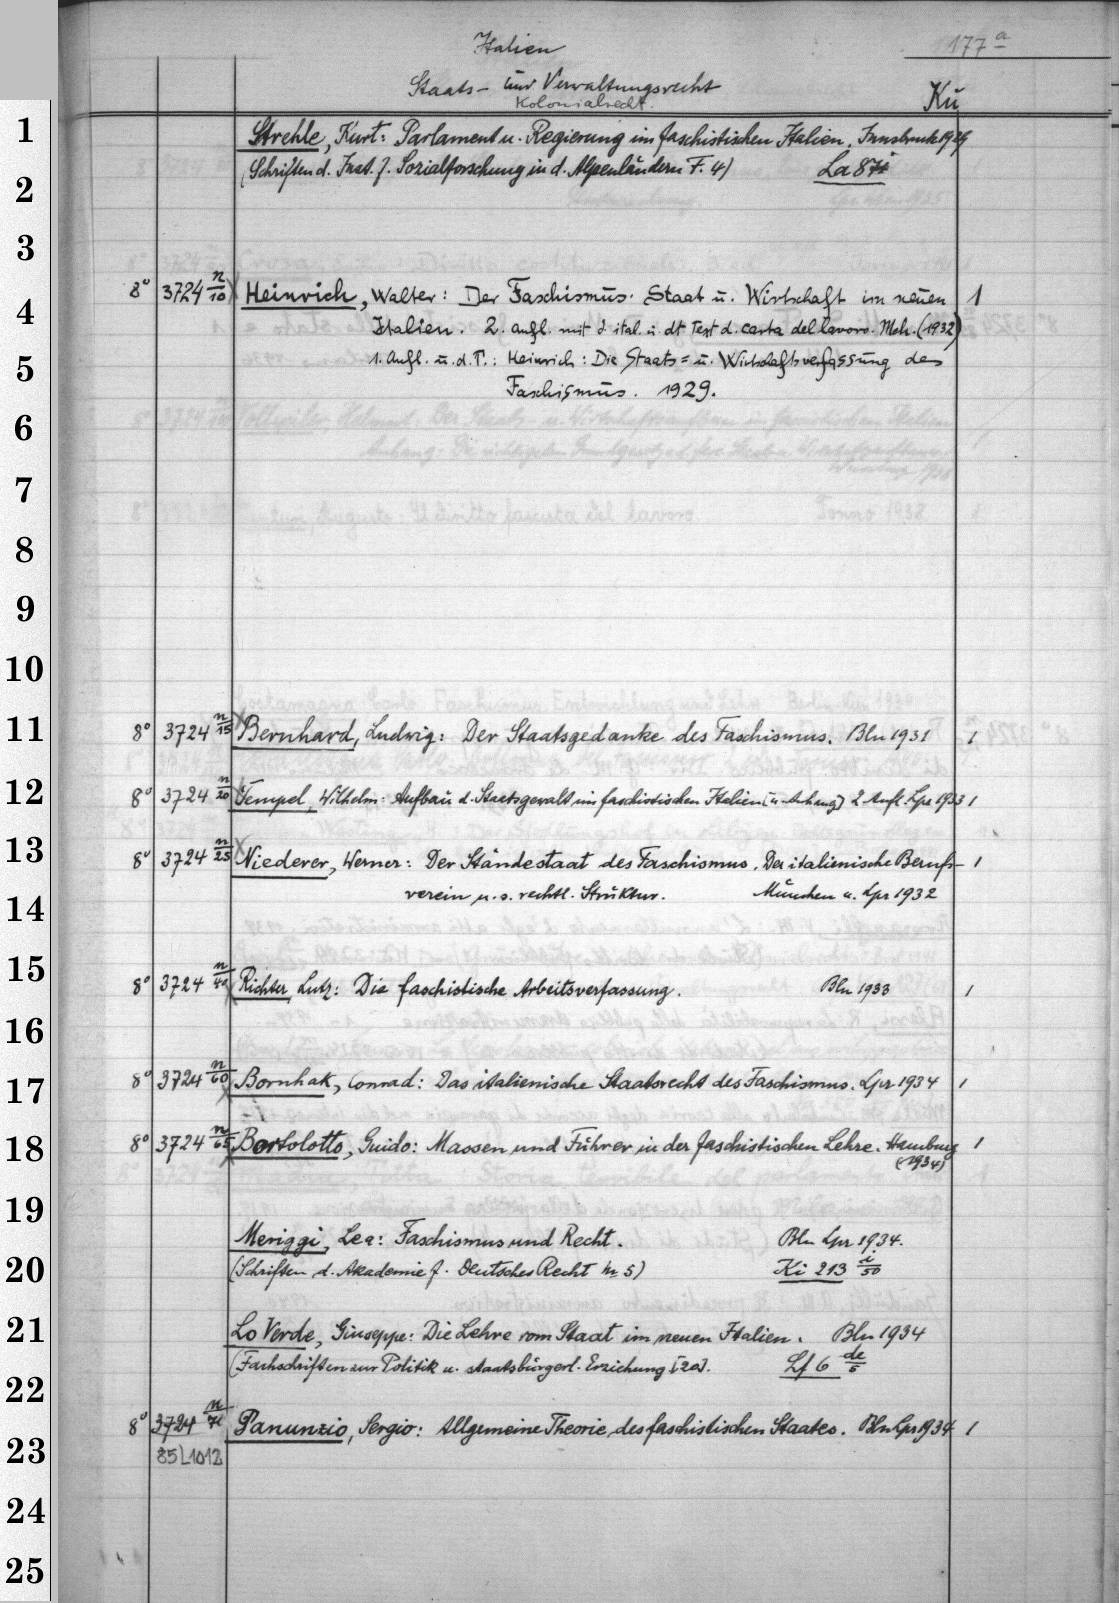 Italien
177 a
Staats- und Verwaltungsrecht
Kolonialrecht.
Kü
1
Strehle, Kurt: Parlament u. Regierung im faschistischen Italien. Innsbruck 1929
(Schriften d. Inst. f. Sozialforschung in d. Alpenländern F. 4) La 87i
2
3
8° 3724 n/10 Heinrich, Walter: Der Faschismus. Staat u. Wirtschaft im neuen 1
4
Italien. 2. Aufl. mit d. ital. u. dt Text d. carta del lavoro. Mch. (1932)
1. Aufl. u. d. T.: Heinrich: Die Staats= u. Wirtschaftsverfassung des
5
Faschismus. 1929.
6
7
8
9
10
11
8° 3724 n/15 Bernhard, Ludwig: Der Staatsgedanke des Faschismus. Bln 1931 1
12
8° 3724 n/20 Tempel, Wilhelm: Aufbau d. Staatsgewalt im faschistischen Italien [u. Anhang] 2. Aufl. Lpz 1933 1
13
8° 3724 n/25 Niederer, Werner: Der Ständestaat des Faschismus. Der italienische Berufs- 1
verein u. s. rechtl. Struktur. München u. Lpz 1932
14
15
8° 3724 n/40 Richter, Lutz: Die faschistische Arbeitsverfassung. Bln 1933 1
16
17
8° 3724 n/60 Bornhak, Conrad: Das italienische Staatsrecht des Faschismus. Lpz 1934 1
18
8° 3724 n/65 Bortolotto, Guido: Massen und Führer in der faschistischen Lehre. Hamburg 1
(1934)
19
Meriggi, Lea: Faschismus und Recht. Bln Lpz 1934.
20
(Schriften d. Akademie f. Deutsches Recht Nr 5) Ki 213 i/50
21
Lo Verde, Giuseppe: Die Lehre vom Staat im neuen Italien. Bln 1934
(Fachschriften zur Politik u. staatsbürgerl. Erziehung [20]. Lf 6 de/5
22
8° 3724 n/70 Panunzio, Sergio: Allgemeine Theorie des faschistischen Staates. Bln Lpz 1934 1
23
85L1012
24
25